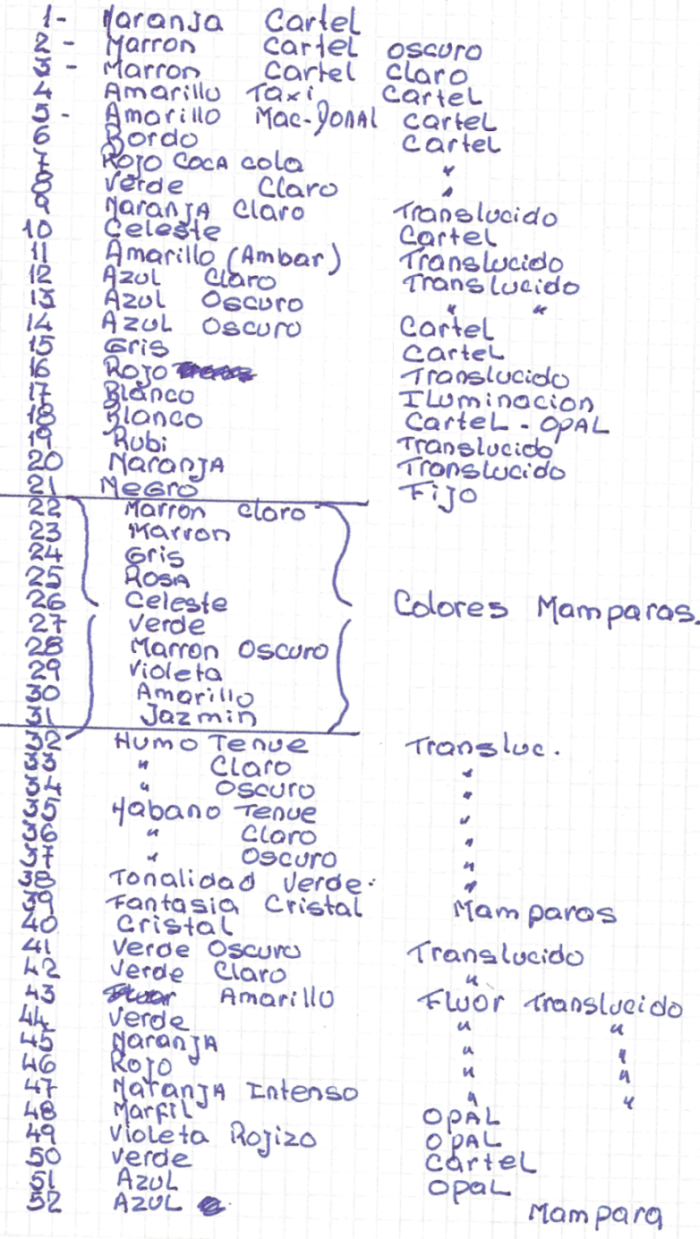 1- Naranja Cartel
2- Marron Cartel oscuro
3- Marron Cartel Claro
4 Amarillo Taxi Cartel
5- Amarillo Mac-Donal Cartel
6 Bordo Cartel
7 Rojo Coca cola "
8 Verde Claro "
9 NaranJA Claro Translucido
10 Celeste Cartel
11 Amarillo (Ambar) Translucido
12 Azul Claro Translucido
13 Azul Oscuro " "
14 Azul Oscuro Cartel
15 Gris Cartel
16 Rojo Translucido
17 Blanco ILuminacion
18 Blanco Cartel - OPAL
19 Rubi Translucido
20 NaranJA Translucido
21 Negro FiJo
22 Marron Claro
23 Marron
24 Gris
25 Rosa
26 Celeste Colores Mamparas.
27 Verde
28 Marron Oscuro
29 Violeta
30 Amarillo
31 Jazmin
32 Humo Tenue Transluc.
33 " Claro "
34 " Oscuro "
35 Habano Tenue "
36 " Claro "
37 " Oscuro "
38 Tonalidad Verde. "
39 Fantasia Cristal Mamparas
40 Cristal
41 Verde Oscuro Translucido
42 Verde Claro "
43 Amarillo Fluor Translucido
44 Verde " "
45 NaranJA " "
46 Rojo " "
47 NaranJA Intenso " "
48 Marfil OPAL
49 Violeta Rojizo OPAL
50 Verde Cartel
51 Azul Opal
52 Azul Mampara